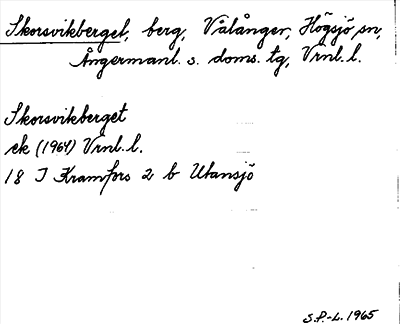 Skorsvikberget, berg, Vålånger, Högsjö sn,
Ångermanl. s. doms. tg, Vrnl. l.
Skorsvikberget
ek (1964) Vrnl. l.
18 I Kramfors 2 b Utansjö
S.P.-L. 1965